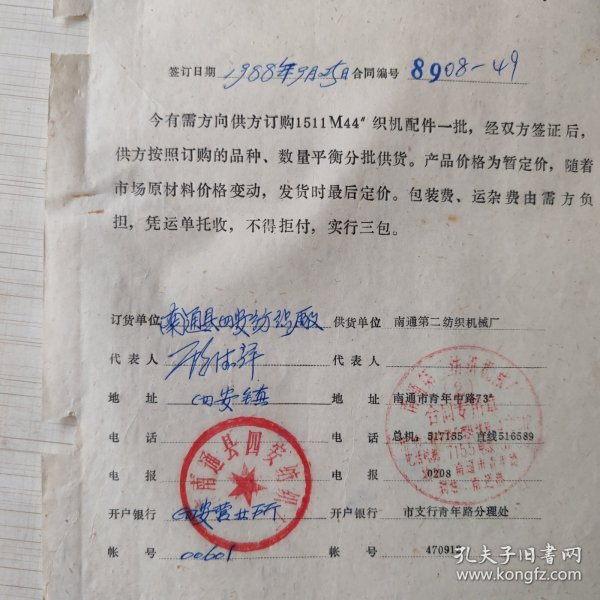 签订日期 1988年9月25日 合同编号 8908-49
今有需方向供方订购1511M44″织机配件一批，经双方签证后，
供方按照订购的品种、数量平衡分批供货。产品价格为暂定价，随着
市场原材料价格变动，发货时最后定价。包装费、运杂费由需方负
担，凭运单托收，不得拒付，实行三包。
订货单位 南通县四安纺织厂 供货单位 南通第二纺织机械厂
代表人 代表人
地址 四安镇 地址 南通市青年中路73#
电话 电话 总机：517155 直线516589
电报 电报 0208
开户银行 四安营业所 开户银行 市支行青年路分理处
帐号 00601 帐号 47091
南通县四安纺织
合同专用章
孔夫子旧书网
www.kongfz.com